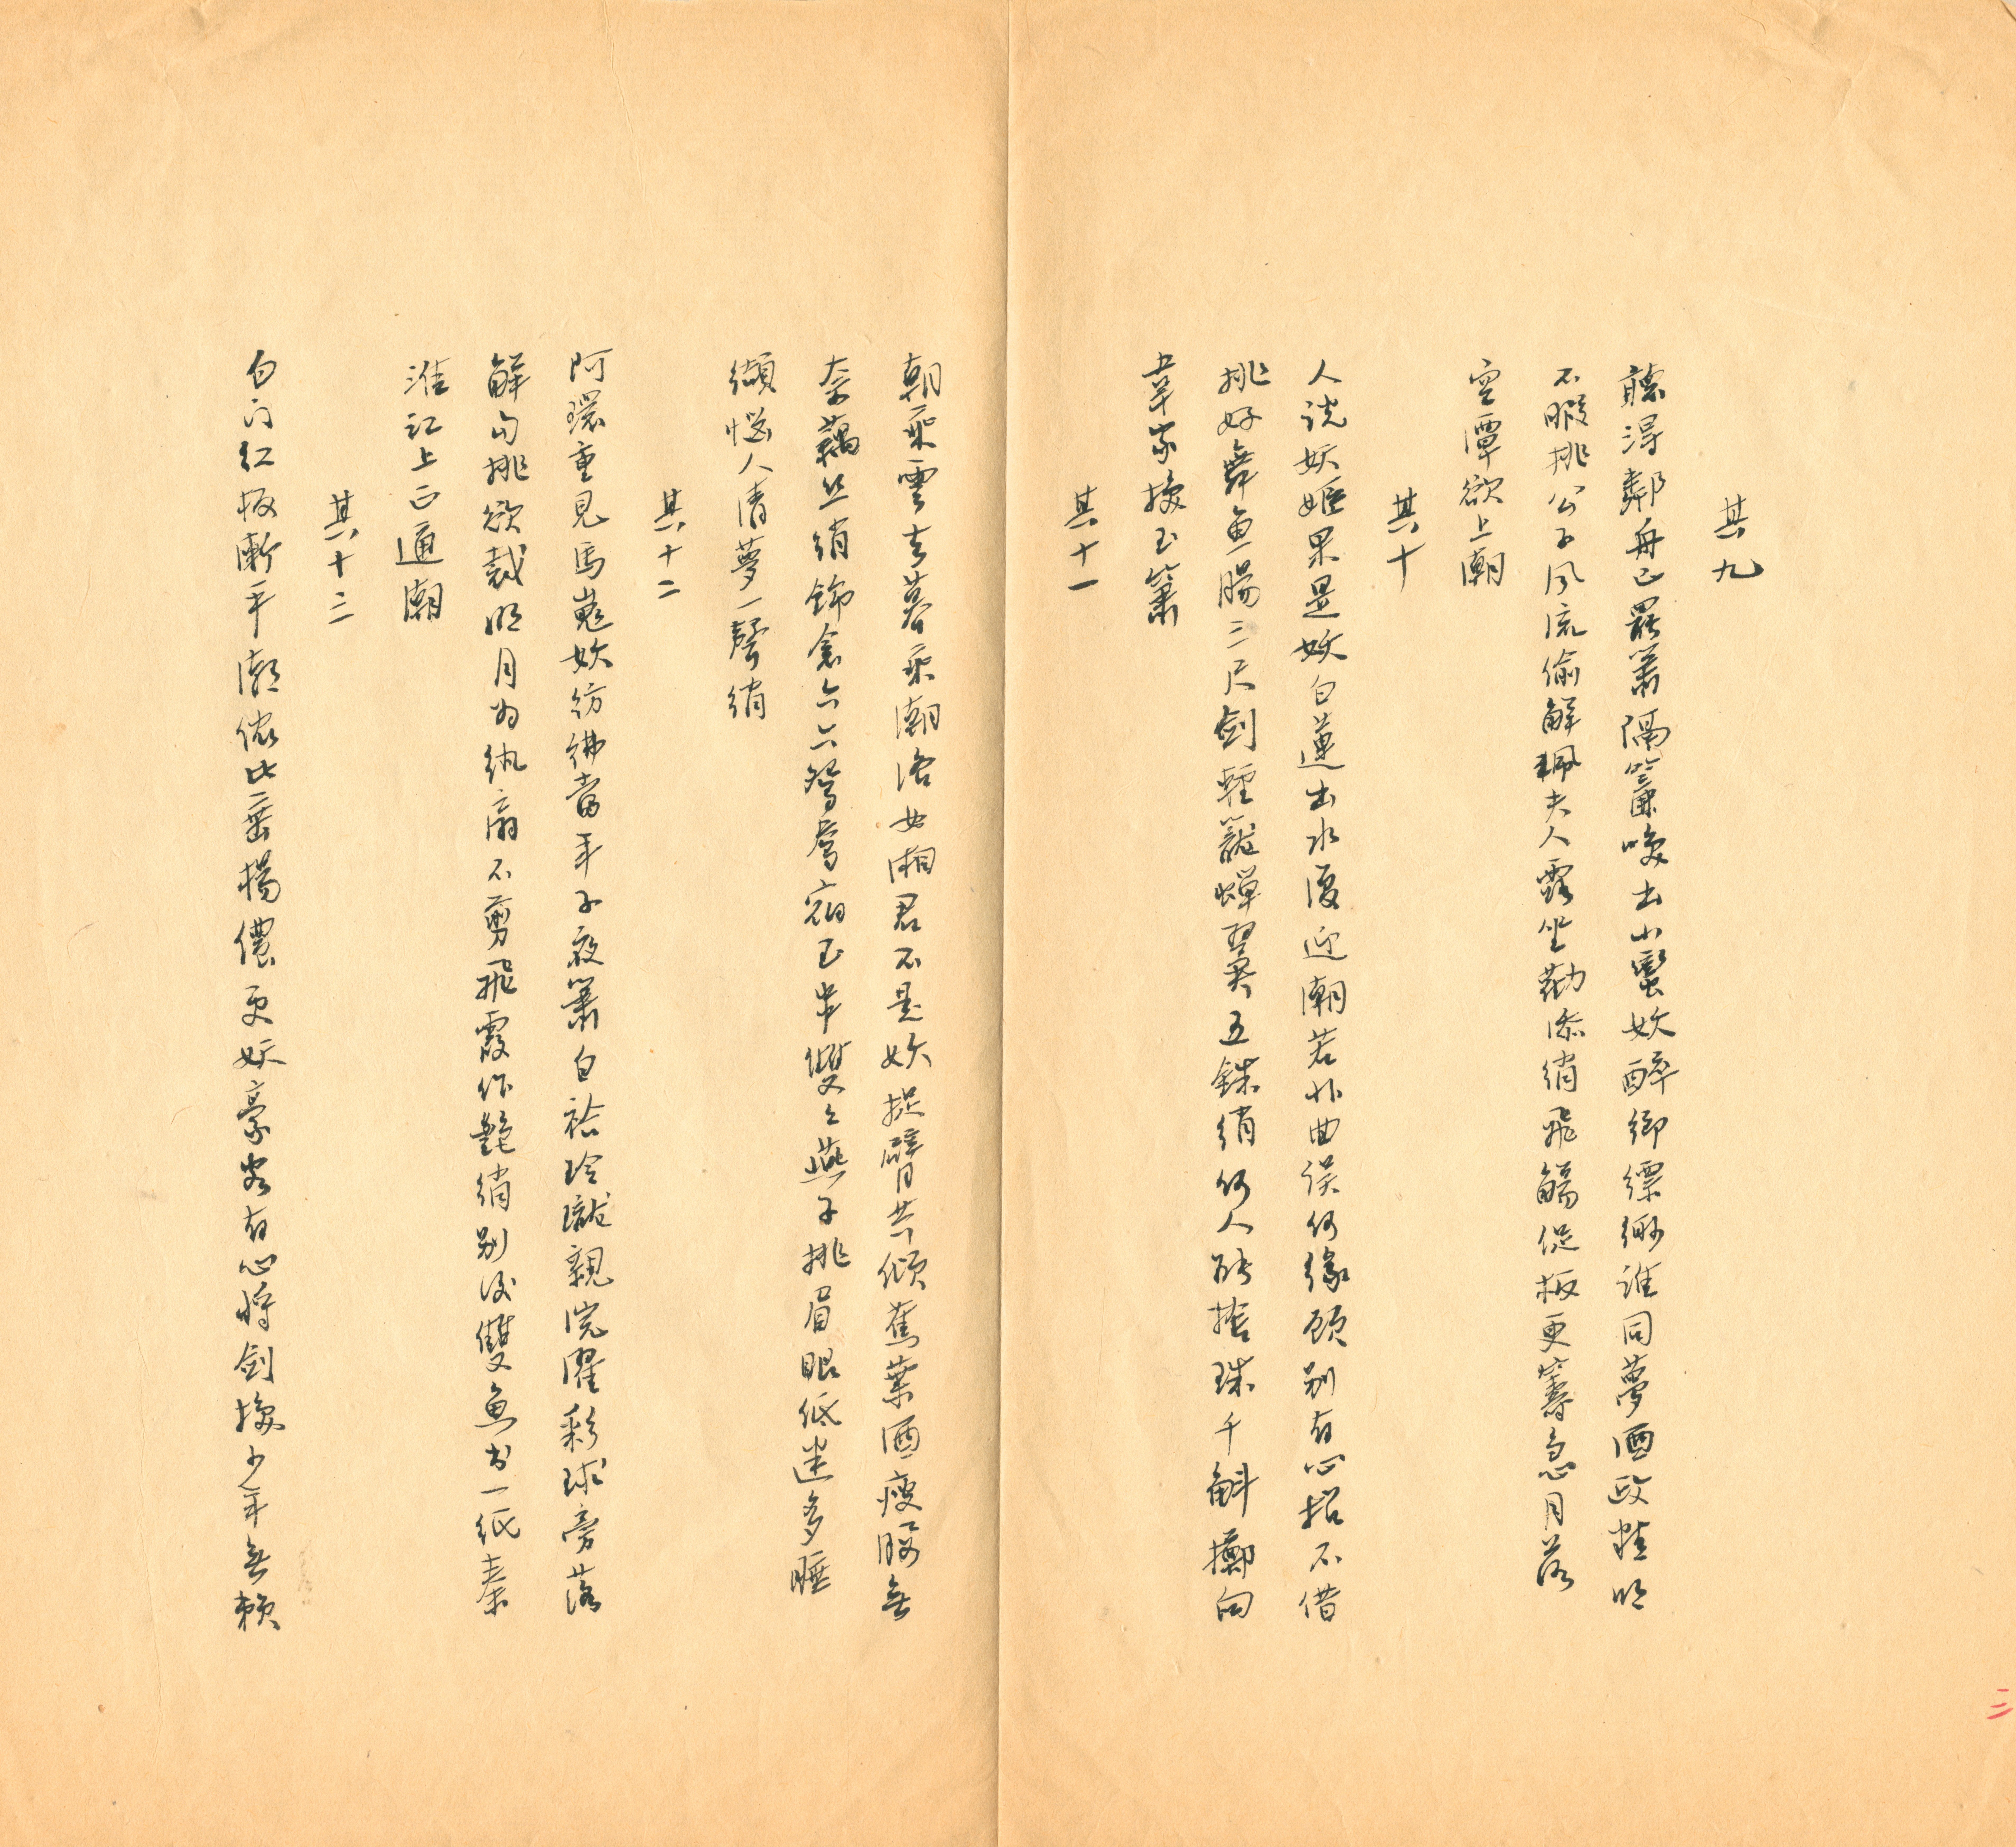 其九
聽得鄰舟已罷簫隔簾喚出小蠻妖醉鄉縹緲誰同夢酒政

不暇挑公子風流偷解珮夫人露坐勸添綃飛觴促板更籌急月落
空潭欲上潮
其十
人說妖姬果是妖白蓮出水復迎潮若非曲誤何緣顧別有心招不借
挑好舞魚腸三尺劍輕籠蟬翼五銖綃何人能捨珠千斛擲向
韋家換玉簫
其十一
朝乘雲去暮乘潮洛女湘君不是妖捉臂共傾蕉葉酒瘦腰無
奈藕絲綃錦衾六六鴛鴦宿玉串雙雙燕子挑眉眼低迷多睡
纈惱人清夢一聲綃
其十二
阿環重見馬嵬妖彷彿當年子夜簫白袷玲瓏親浣濯彩球旁落
解勾挑欲裁明月為紈扇不剪飛霞作艷綃別後雙魚書一紙秦
淮江上正通潮
其十三
白門紅板漸平潮儂比垂楊儂更妖豪客有心將劍換少年無賴